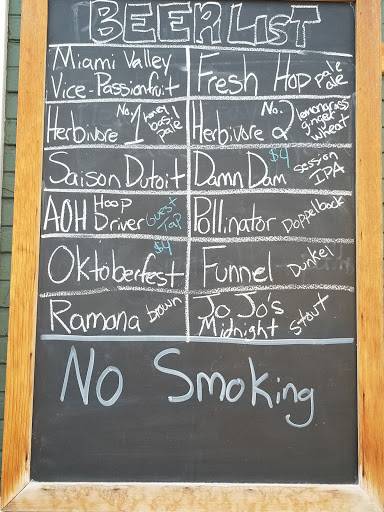 BEER LIST
Miami Valley
Vice-Passionfruit
Fresh Hop pale ale
Herbivore No. 1 honey basil pale
Herbivore No. 2 lemongrass ginger wheat
Saison Dutoit
Damn Dam $4 Session IPA
AOH Hoop Driver Guest Tap
Pollinator Doppelbock
Oktoberfest $4
Funnel Dunkel
Ramona brown
Jo Jo's
Midnight Stout
No Smoking